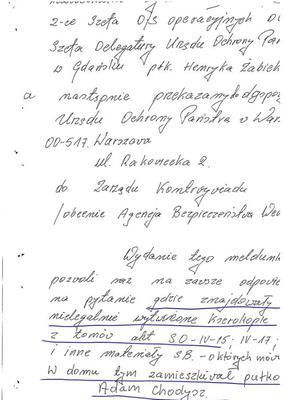 2-ce Szefa D/S operacyjnych D
Szefa Delegatury Urzędu Ochrony Pań
w Gdańsku płk. Henryka Żabick
a następnie przekazany do dyspoz
Urzędu Ochrony Państwa w War
00-517. Warszawa
ul. Rakowiecka 2.
do Zarządu Kontrwywiadu
/obecnie Agencja Bezpieczeństwa Wew
Wydanie tego meldunk
pozwoli raz na zawsze odpowie
na pytanie gdzie znajdowały
nielegalnie wytworzone kserokopie
z tomów akt SO-IV-15; IV-17;
i inne materiały SB. - o których mów
W domu tym zamieszkiwał pułko
Adam Chodysz.